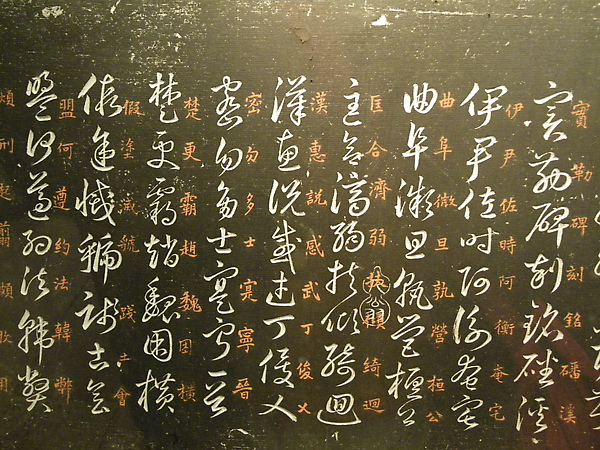 實勒碑刻銘磻溪
實勒碑刻銘磻溪
伊尹佐時阿衡奄宅
伊尹佐時阿衡奄宅
曲阜微旦孰營桓公
曲阜微旦孰營桓公
匡合濟弱扶傾綺迴
匡合濟弱扶傾綺迴
漢惠說感武丁俊乂
漢惠說感武丁俊乂
密勿多士寔寧晉
密勿多士寔寧晉
楚更霸趙魏困橫
楚更霸趙魏困橫
假途滅虢踐土會
假途滅虢踐土會
盟何遵約法韓弊
盟何遵約法韓弊
煩刑起翦頗牧用